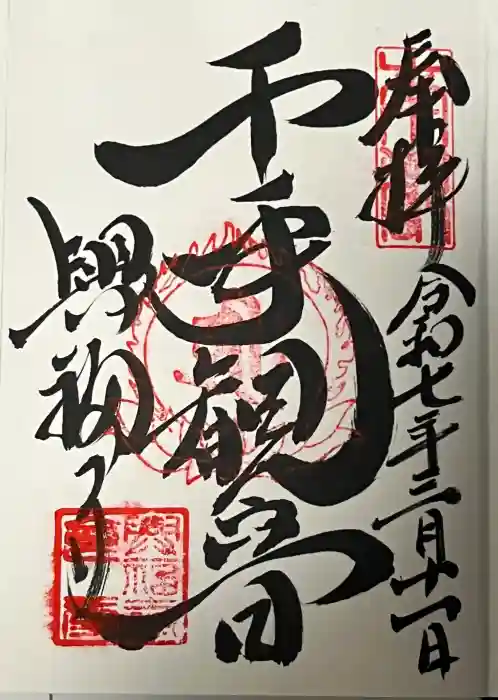 奉拝
令和七年三月十一日
千手観音
興福寺